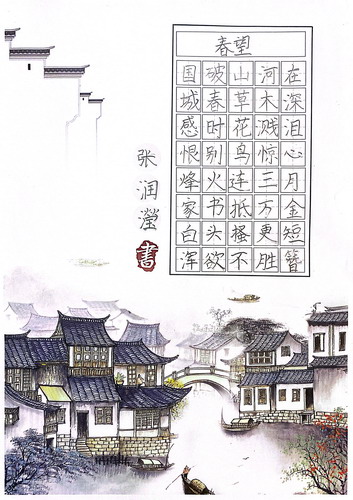 春望
国破山河在
城春草木深
感时花溅泪
恨别鸟惊心
烽火连三月
家书抵万金
白头搔更短
浑欲不胜簪
张润滢
書